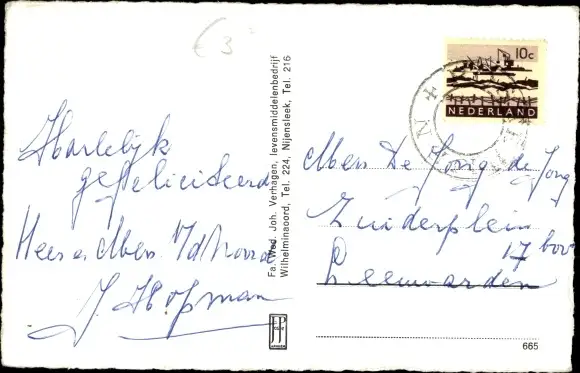 € 3
Hartelijk
gefeliciteerd
Heer en Mevr. v/d Noord
J. Hopman
Fa. Wed. Joh. Verhagen, levensmiddelenbedrijf
Wilhelminaoord, Tel. 224, Nijensleek, Tel. 216
10c
NEDERLAND
Mevr De Jong de Jong
Zuiderplein
17 bov
Leeuwarden
JP
665